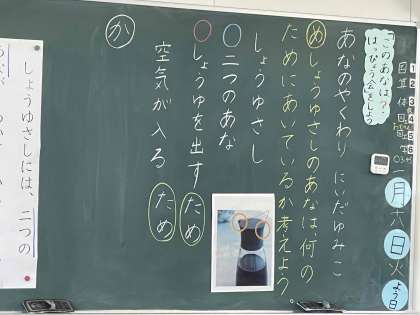 このあなは?
はっぴょう会をしよう
1
2
3
4
5
6
国
算
体
一月六日火よう日
あなのやくわり にいだゆみこ
め しょうゆさしのあなは、何の
ために あいているか考えよう。
しょうゆさし
二つのあな
しょうゆを出す ため
空気が入る ため
か
しょうゆさしには、二つの